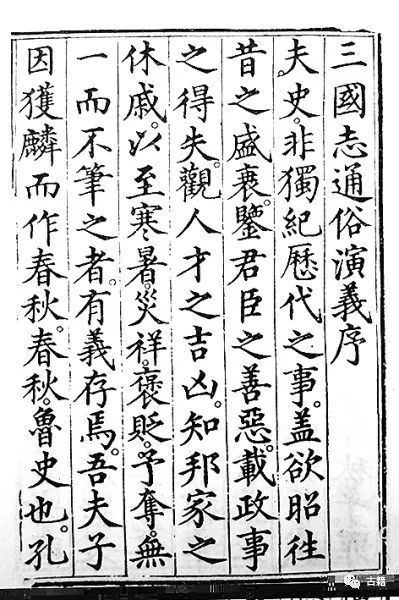 三國志通俗演義序
夫史。非獨紀歷代之事。蓋欲昭徃
昔之盛衰。鑒君臣之善惡。載政事
之得失。觀人才之吉凶。知邦家之
休戚。以至寒暑。災祥。褒貶。予奪。無
一而不筆之者。有義存焉。吾夫子
因獲麟而作春秋。春秋。魯史也。孔
古籍